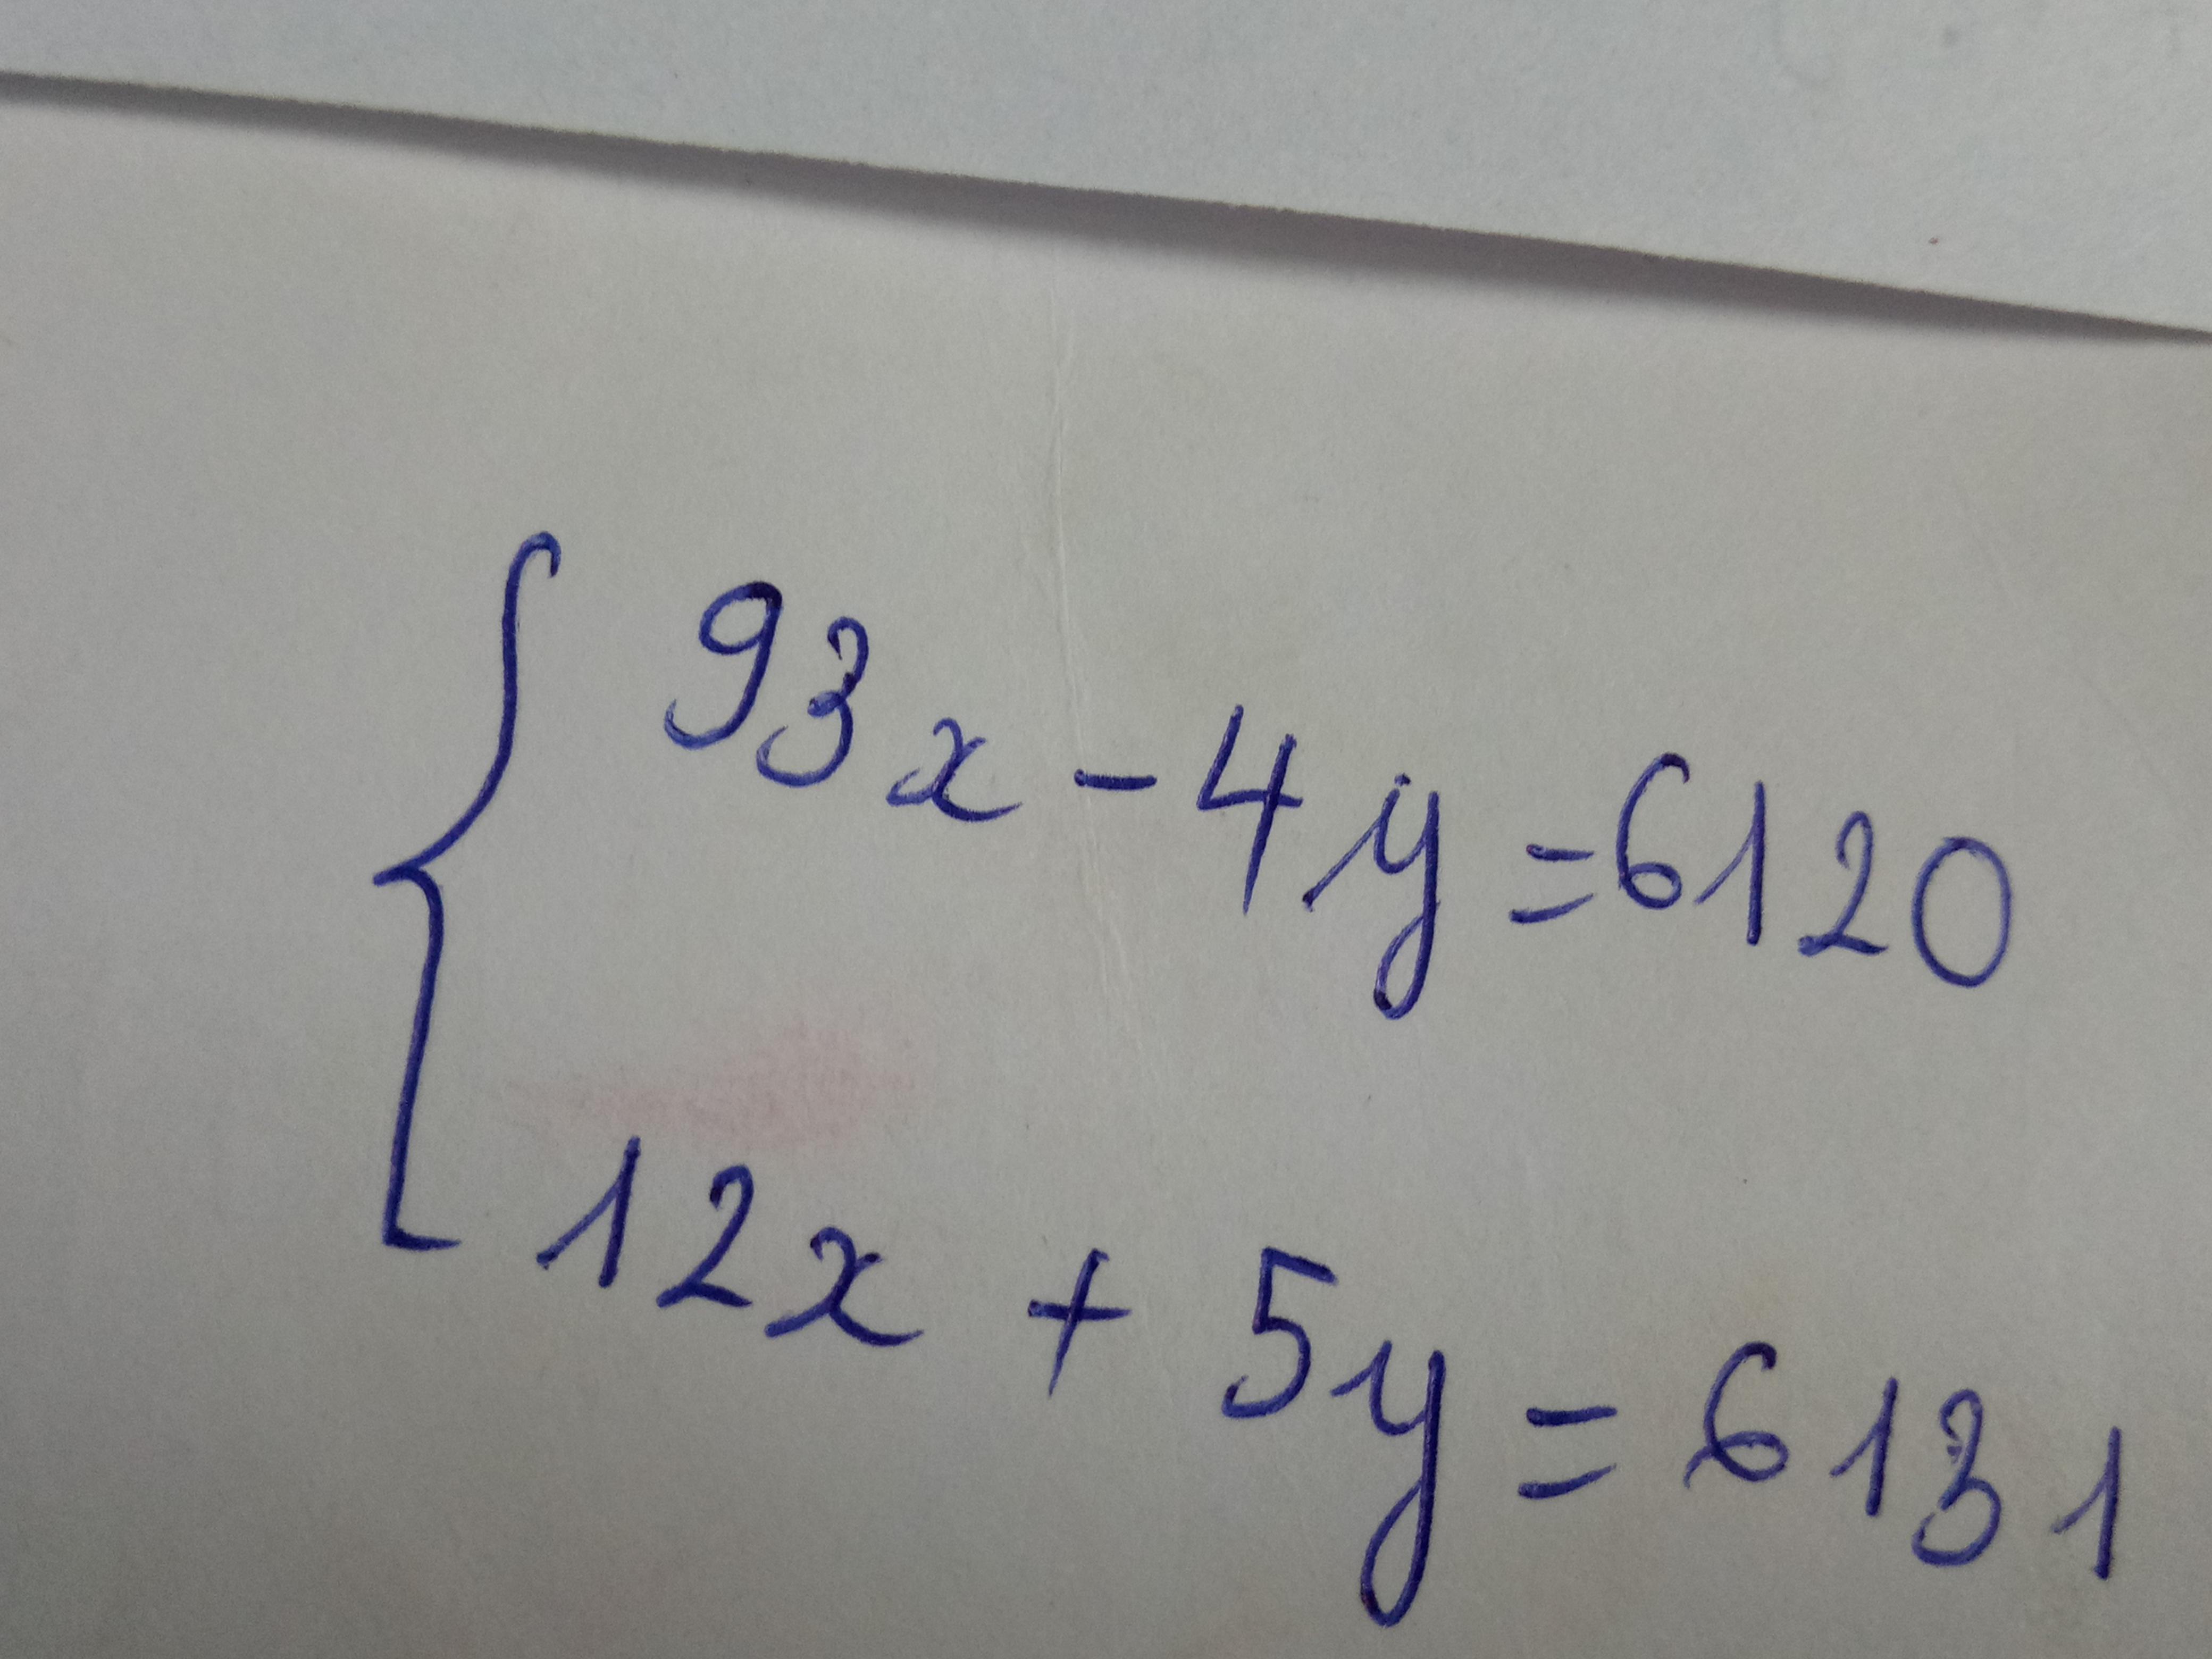 93x - 4y = 6120
12x + 5y = 6131